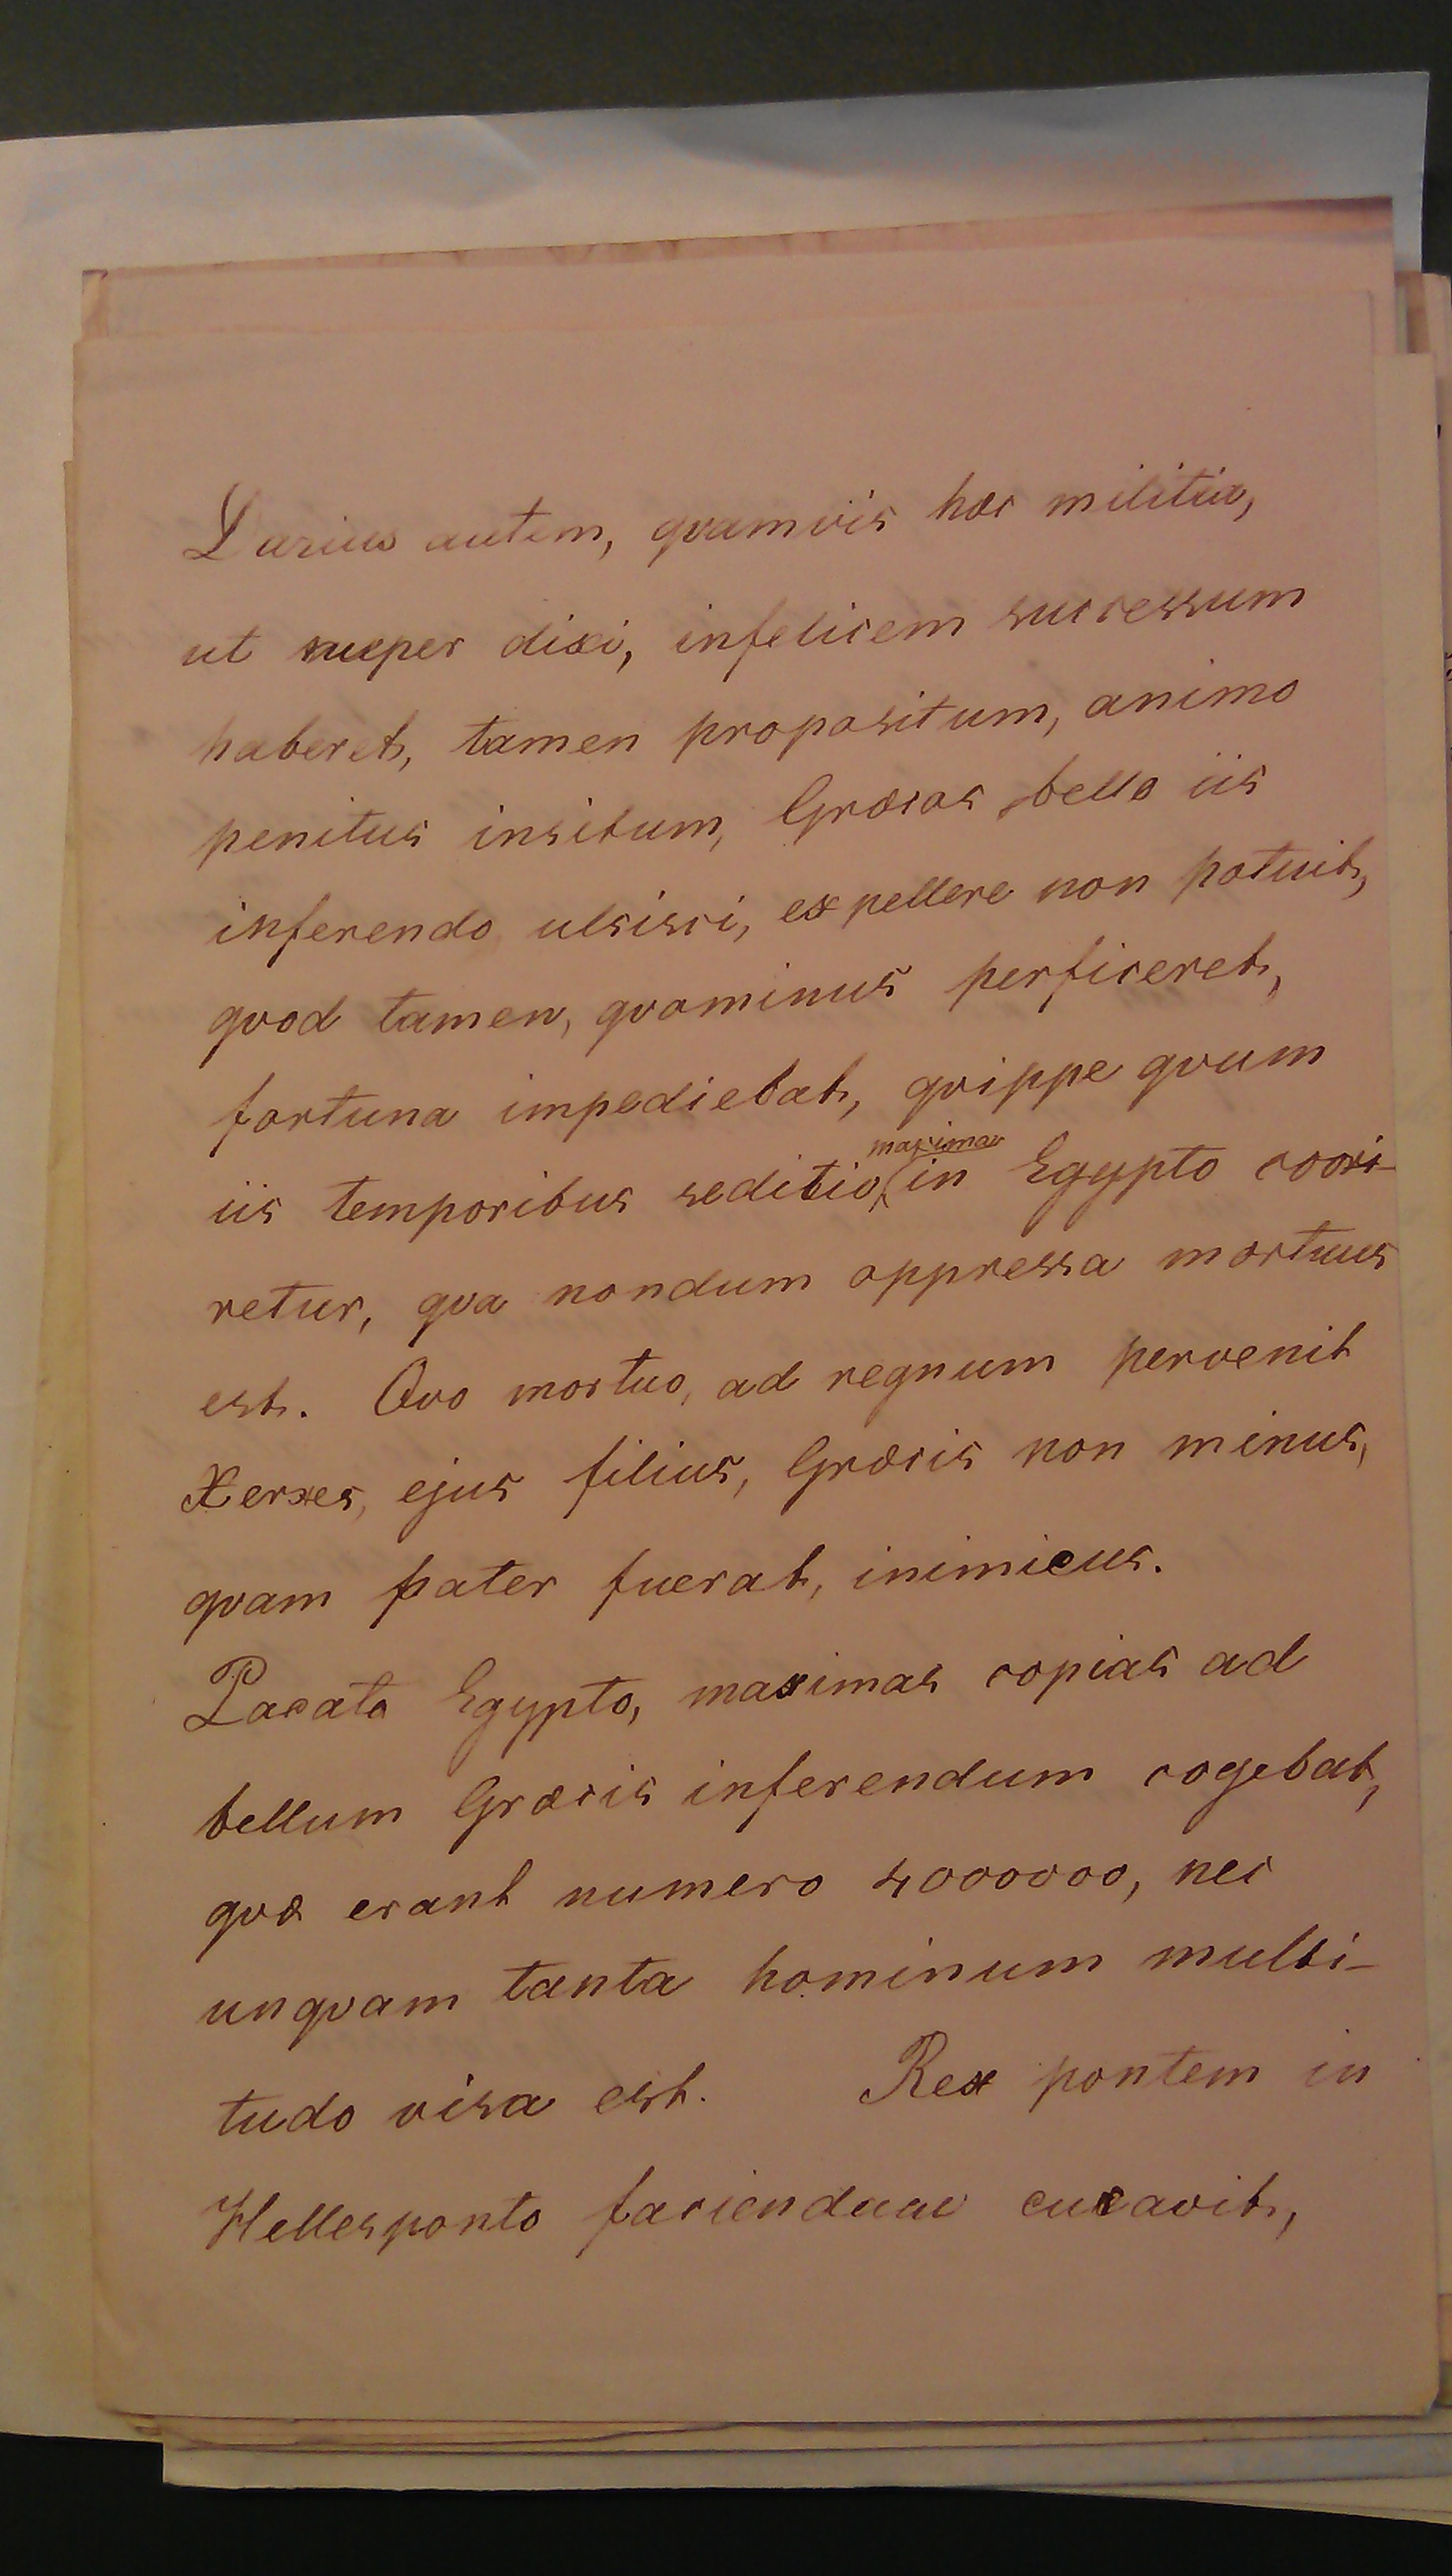 Darius autem, qvamvis hæc militia,
ut nuper dixi, infelicem successum
haberet, tamen propositum, animo
penitus insitum, Græcos bello iis
inferendo ulcisci, expellere non potuit,
qvod tamen, qvominus perficeret,
fortuna impediebat, qvippe qvum
maxima
iis temporibus seditio in Egypto coori-
retur, qva nondum oppressa mortuus
est. Qvo mortuo, ad regnum pervenit
Xerxes, ejus filius, Græcis non minus,
qvam pater fuerat, inimicus.
Pacata Egypto, maximas copias ad
bellum Græcis inferendum cogebat,
qvæ erant numero 4000000, nec
unqvam tanta hominum multi-
tudo visa est. Rex pontem in
Hellesponto faciendum curavit,